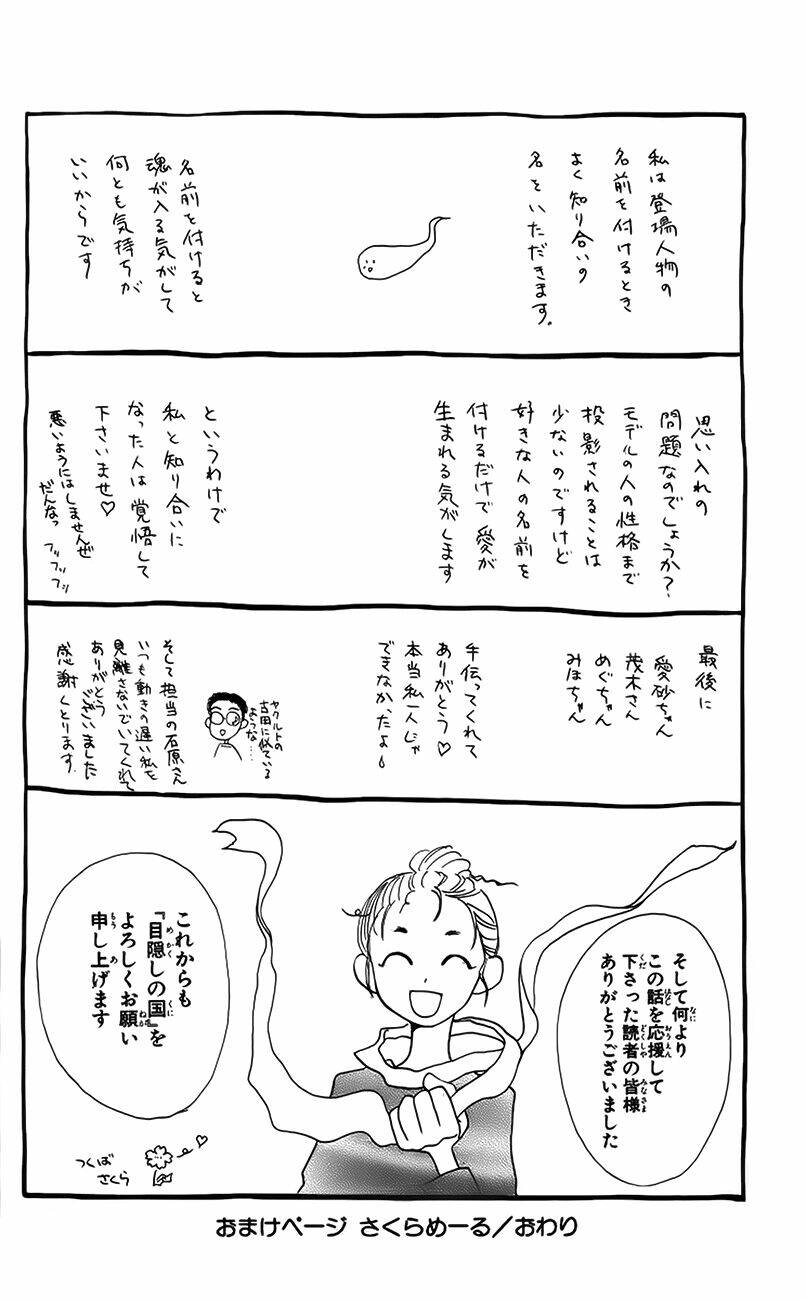 私は登場人物の
名前を付けるとき
よく知り合いの
名をいただきます。
名前を付けると
魂が入る気がして
何とも気持ちが
いいからです
思い入れの
問題なのでしょうか?
モデルの人の性格まで
投影されることは
少ないのですけど
好きな人の名前を
付けるだけで愛が
生まれる気がします
というわけで
私と知り合いに
なった人は覚悟して
下さいませ♡
悪いようにはしませんぜ
だんなっ フッフッフッ
最後に
愛砂ちゃん
茂木さん
めぐちゃん
みほちゃん
手伝ってくれて
ありがとう♡
本当私一人じゃ
できなかったよ
ヤクルトの
古田に似ている
ような……
そして担当の石原さん
いつも動きの遅い私を
見離さないでいてくれて
ありがとう
ございました
感謝しとります
そして何より
この話を応援して
下さった読者の皆様
ありがとうございました
これからも
『目隠しの国』を
よろしくお願い
申し上げます
つくば
さくら
おまけページ さくらめーる/おわり